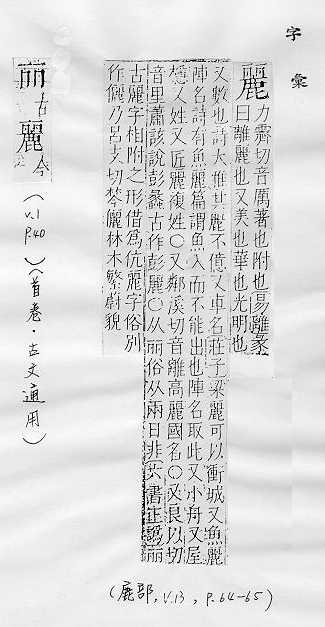 字彙
麗 力霽切音厲著也附也易離彖
曰離麗也又美也華也光明也
又數也詩大雅其麗不億又車名莊子梁麗可以衝城又魚麗
陣名詩有魚麗篇謂魚入而不能出也陣名取此又小舟又屋
穩又姓又匠麗複姓○又鄰溪切音離高麗國名○又良以切
音里蕭該說彭蠡古作彭麗○从丽俗从兩日非六書正譌丽
古麗字相附之形借為伉麗字俗別
作儷乃呂支切棽儷林木繁蔚貌
丽 古 麗 今
(v.1 P.40)(首卷·古文通用)
(鹿部, v.13, P.64-65)